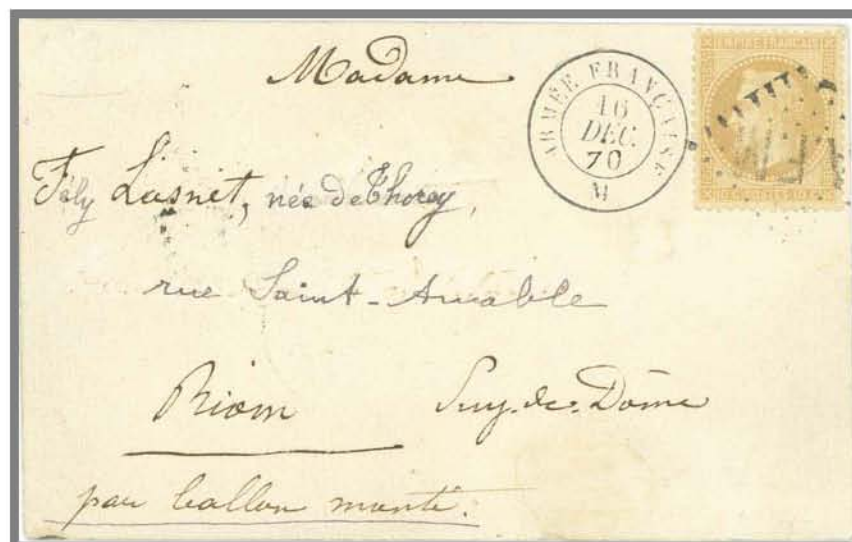 Madame
ARMÉE FRANÇAISE
16
DEC.
70
M
EMPIRE FRANÇAIS
Fély Lasnet, née de Thorey,
rue Saint-Amable
Riom Puy-de-Dôme
par ballon monté.